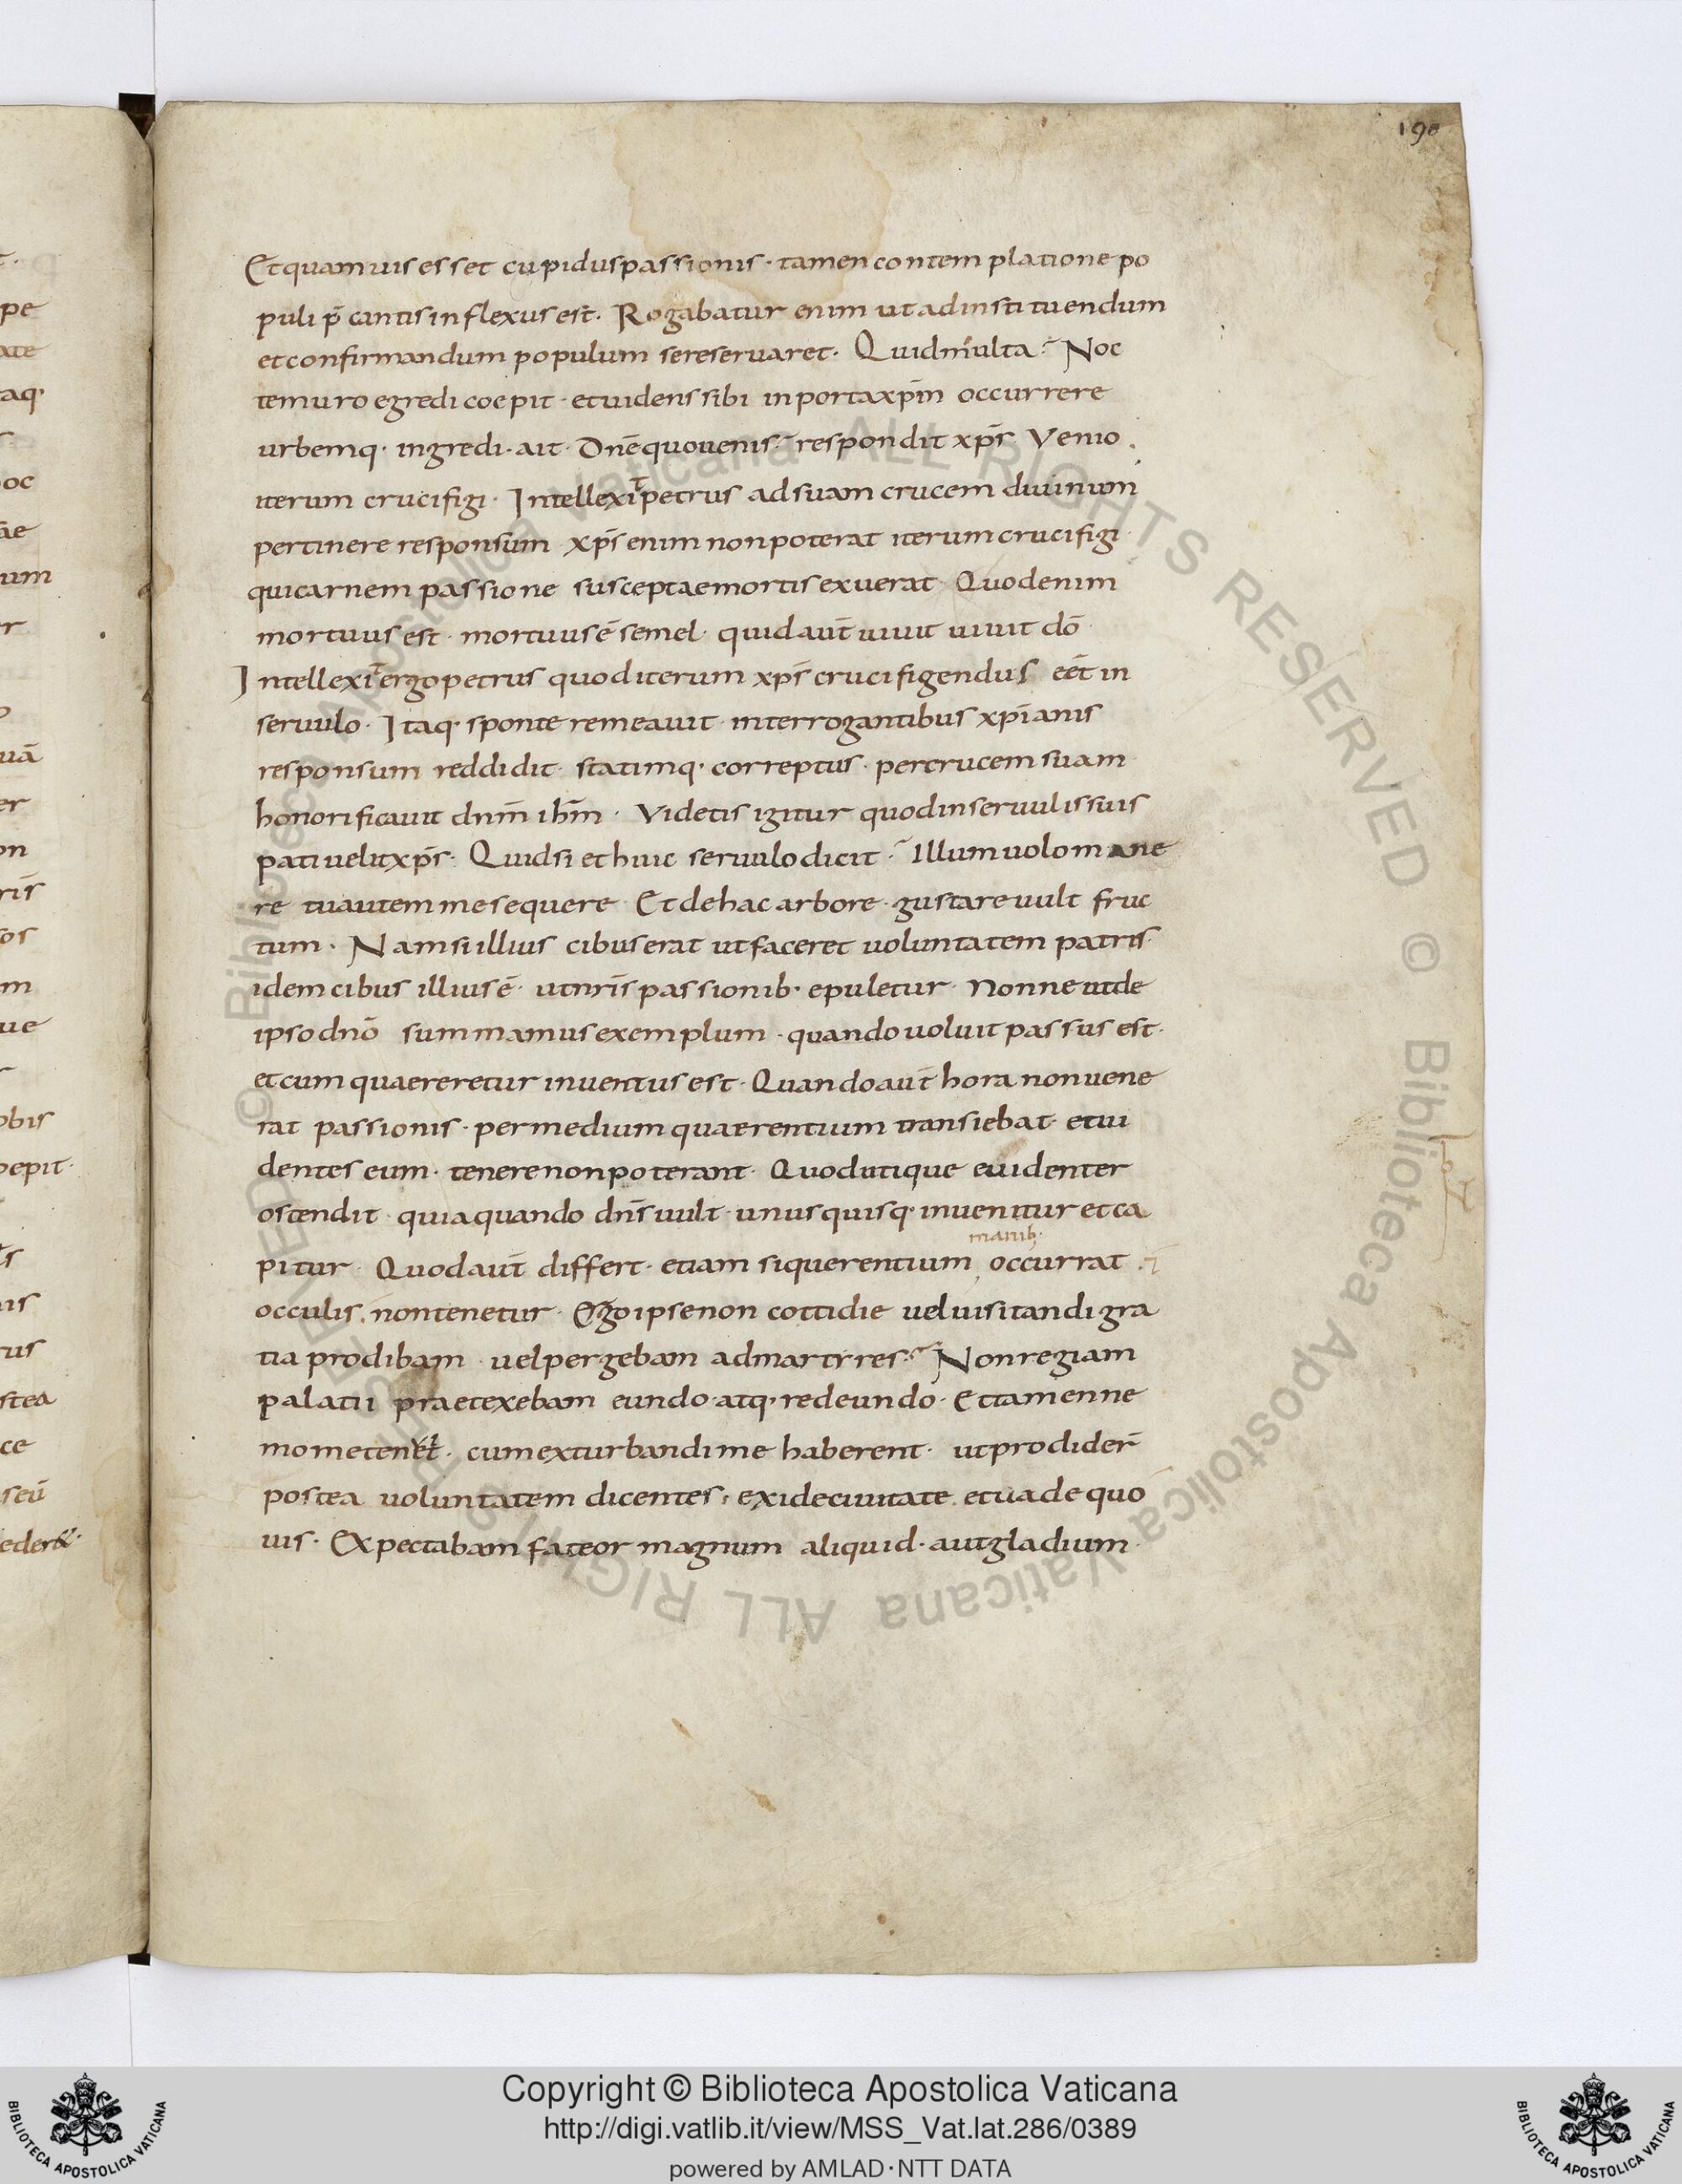 190
Et quamuis esset cupidus passionis · tamen contemplatione po
puli p̄cantis inflexus est. Rogabatur enim ut ad instituendum
et confirmandum populum se reseruaret · Quid multa? Noc
te muro egredi coepit · et uidens sibi in porta xp̄m occurrere
urbemq· ingredi · ait · Dn̄e quo uenis? respondit xp̄s Venio
iterum crucifigi · Intellexit petrus ad suam crucem diuinum
pertinere responsum xp̄s enim non poterat iterum crucifigi
qui carnem passione susceptae mortis exuerat · Quod enim
mortuus est · mortuus ē semel · quid aūt uiuit uiuit dō
Intellexit ergo petrus quod iterum xp̄s crucifigendus eēt in
seruulo · Itaq· sponte remeauit · interrogantibus xp̄ianis
responsum reddidit · statimq· correptus · per crucem suam
honorificauit dnm̄ ihm̄ · Videtis igitur quod in seruulis suis
pati uelit xp̄s · Quid si et huic seruulo dicit? Illum uolo mane
re tu autem me sequere · Et de hac arbore · gustare uult fruc
tum · Nam si illius cibus erat ut faceret uoluntatem patris ·
idem cibus illius ē · ut nr̄is passionib· epuletur · Nonne ut de
ipso dnō summamus exemplum · quando uoluit passus est ·
et cum quaereretur inuentus est · Quando aūt hora non uene
rat passionis · per medium quaerentium transiebat · et ui
dentes eum · tenere non poterant · Quod utique euidenter
ostendit · quia quando dn̄s uult · unusquisq· inuenitur et ca
manib·
pitur · Quod aūt differt · etiam si querentium occurrat
occulis · non tenetur · Ego ipse non cottidie uel uisitandi gra
tia prodibam · uel pergebam ad martyres? Non regiam
palatii praetexebam eundo · atq· redeundo · Et tamen ne
mo me ten&t · cum exturbandi me haberent · ut prodider̄
postea uoluntatem dicentes · exi de ciuitate et uade quo
uis · Expectabam fateor magnum aliquid · aut gladium ·
pe
ate
taq·
oc
um
uā
er
on
ris̄
os
m
ue
obis
oepit ·
us
stea
ce
seū
eder& ·
© Biblioteca Apostolica Vaticana ALL RIGHTS RESERVED © Biblioteca Apostolica Vaticana ALL RIGHTS RESERVED
Copyright © Biblioteca Apostolica Vaticana
http://digi.vatlib.it/view/MSS_Vat.lat.286/0389
powered by AMLAD·NTT DATA
BIBLIOTECA APOSTOLICA VATICANA
BIBLIOTECA APOSTOLICA VATICANA